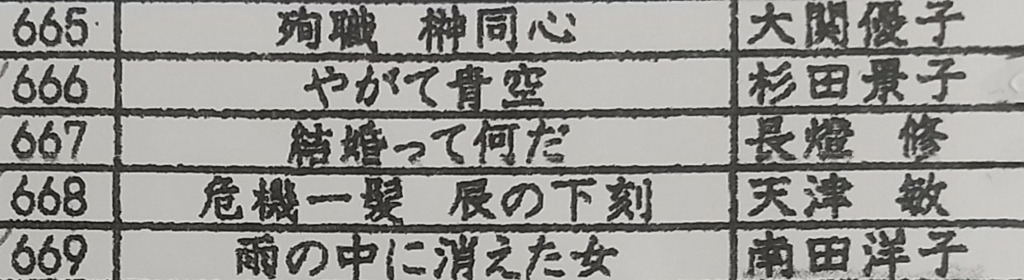 665 殉職 榊同心 大関優子
666 やがて青空 杉田景子
667 結婚って何だ 長燈 修
668 危機一髪 辰の下刻 天津 敏
669 雨の中に消えた女 南田洋子